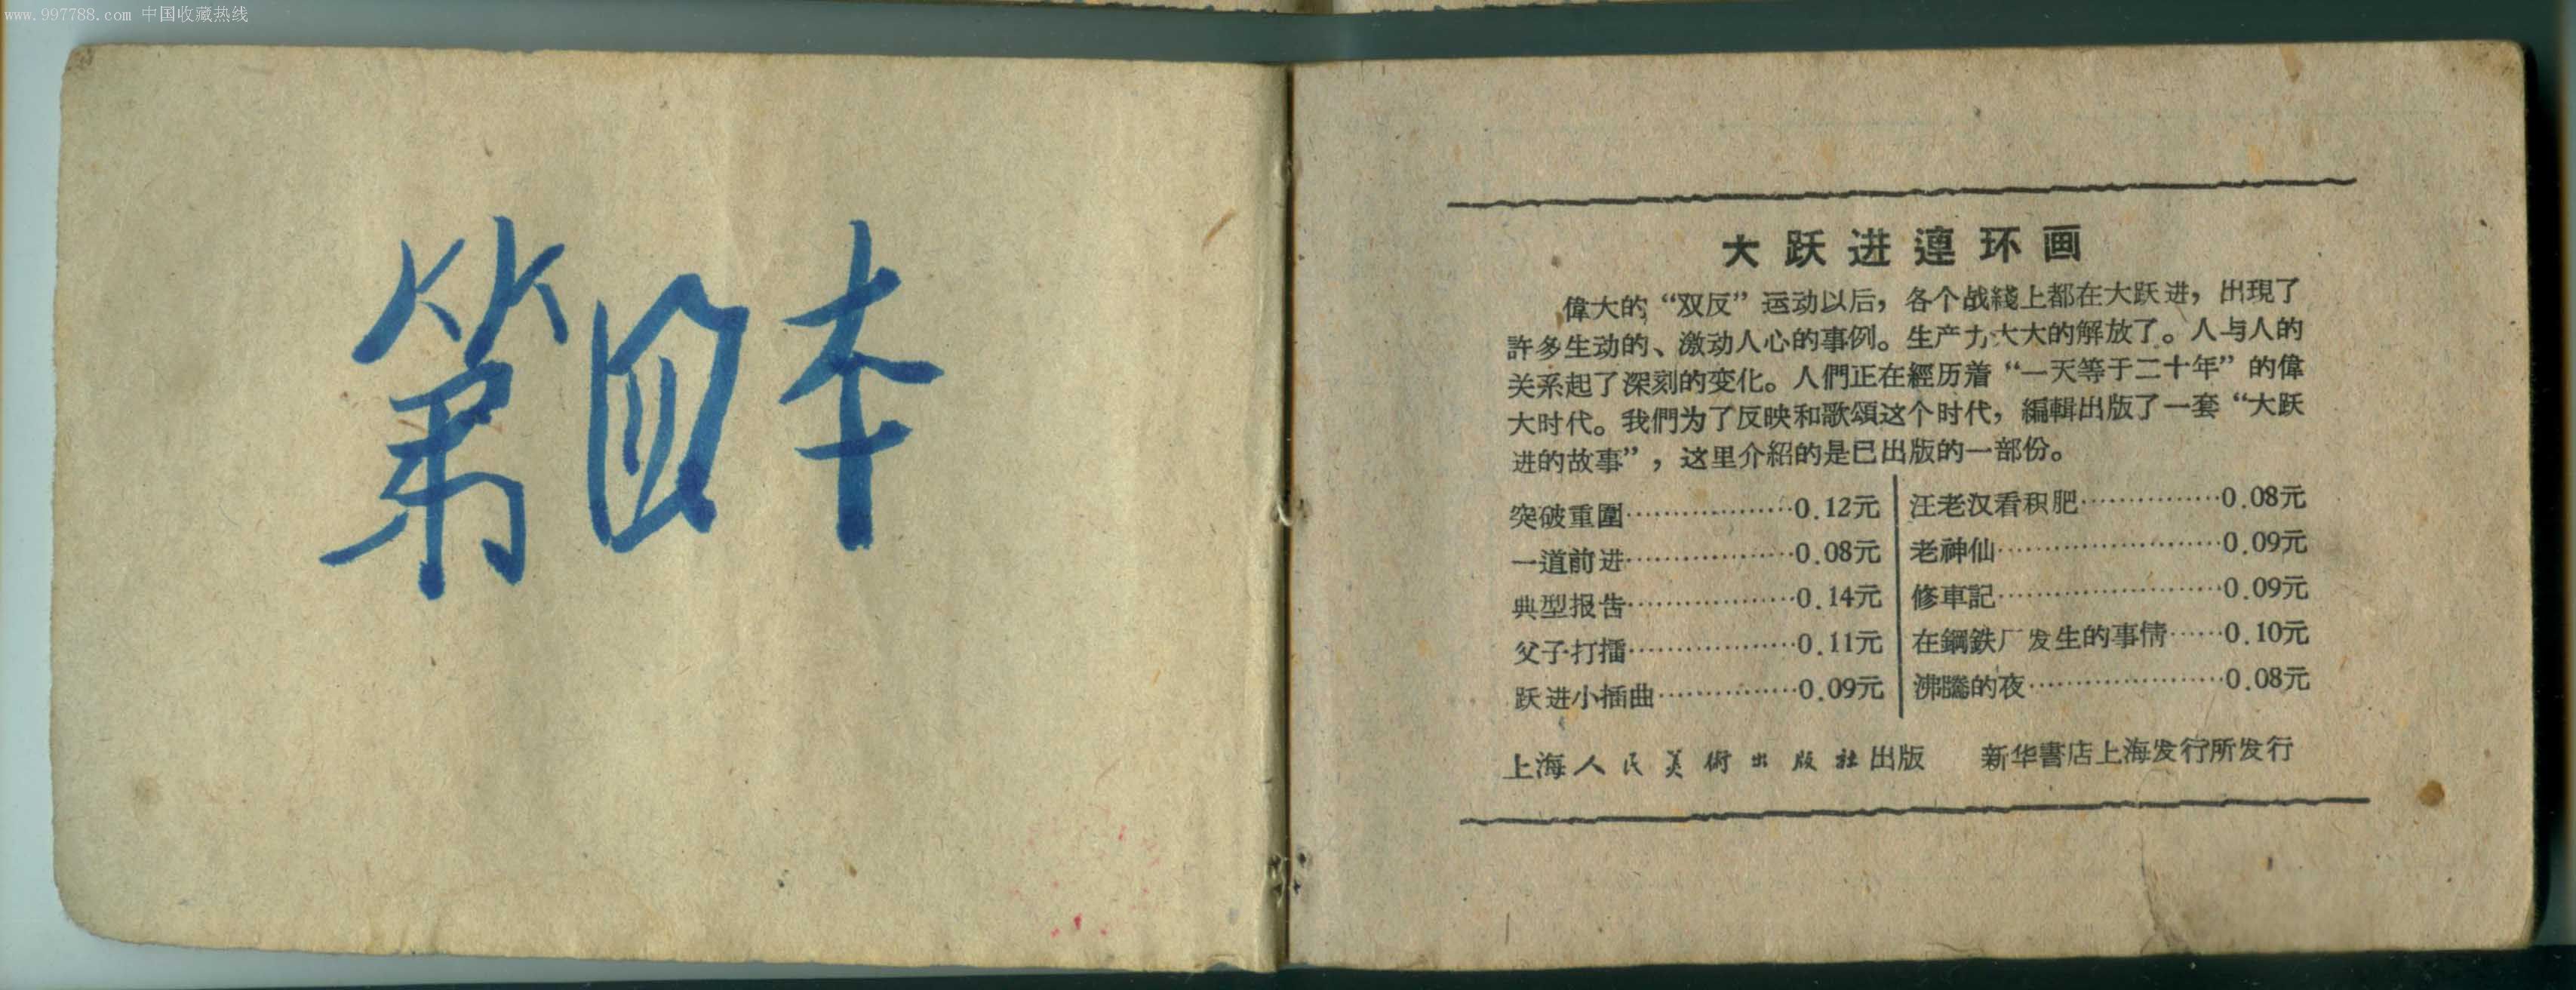 www.997788.com 中国收藏热线
第四本
大跃进連环画
偉大的“双反”运动以后，各个战綫上都在大跃进，出現了
許多生动的、激动人心的事例。生产力大大的解放了。人与人的
关系起了深刻的变化。人們正在經历着“一天等于二十年”的偉
大时代。我們为了反映和歌頌这个时代，編輯出版了一套“大跃
进的故事”，这里介紹的是已出版的一部份。
突破重圍………………0.12元
一道前进………………0.08元
典型报告………………0.14元
父子打擂………………0.11元
跃进小插曲……………0.09元
汪老汉看积肥……………0.08元
老神仙……………………0.09元
修車記……………………0.09元
在鋼鉄厂发生的事情……0.10元
沸騰的夜…………………0.08元
上海人民美術出版社出版 新华書店上海发行所发行